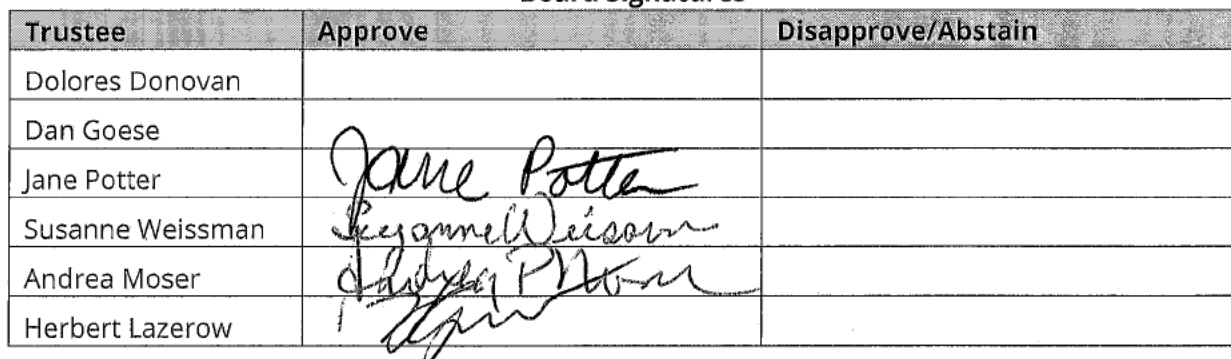 Board Signatures
Trustee Approve Disapprove/Abstain
Dolores Donovan
Dan Goese
Jane Potter Jane Potter
Susanne Weissman Suzanne
Andrea Moser Andrea P
Herbert Lazerow